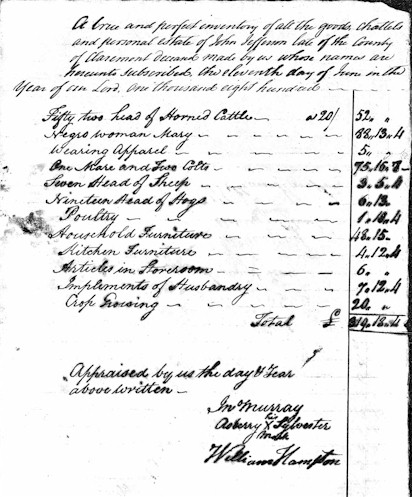 A true and perfect inventory of all the goods, chattels
and personal estate of John Jefferson late of the County
of Claremont deceased made by us whose names are
hereunto subscribed the eleventh day of June in the
Year of our Lord, one thousand eight hundred
Fifty two head of Horned Cattle — a 20/ 52 " "
Negro woman Mary — 33 " 13 " 4
Wearing Apparel — 5 "
One Mare and Two Colts — 75 " 16 " 8
Seven Head of Sheep — 3 " 5 " 4
Nineteen Head of Hogs — 6 " 13
Poultry — 1 " 10 " 4
Household Furniture — 43 " 15
Kitchen Furniture — 4 " 12 " 4
Articles in Storeroom — 6 "
Implements of Husbandry — 7 " 12 " 4
Crop Growing — 20 "
Total £ 319 " 13 " 4
Appraised by us the day & Year
above written —
Jno Murray
his
Asberry X Sylvester
Mark
William Hampton